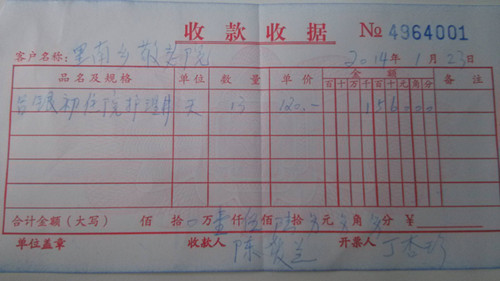 收款收据 № 4964001
客户名称:里南乡敬老院 2014年1月23日
品名及规格 单位 数量 单价 金额 备注
百十万千百十元角分
住院护理 天 13 120.- 156000
合计金额(大写) 佰拾万壹仟伍佰陆拾元角分 ¥
单位盖章 收款人 陈 兰 开票人 丁杏珍